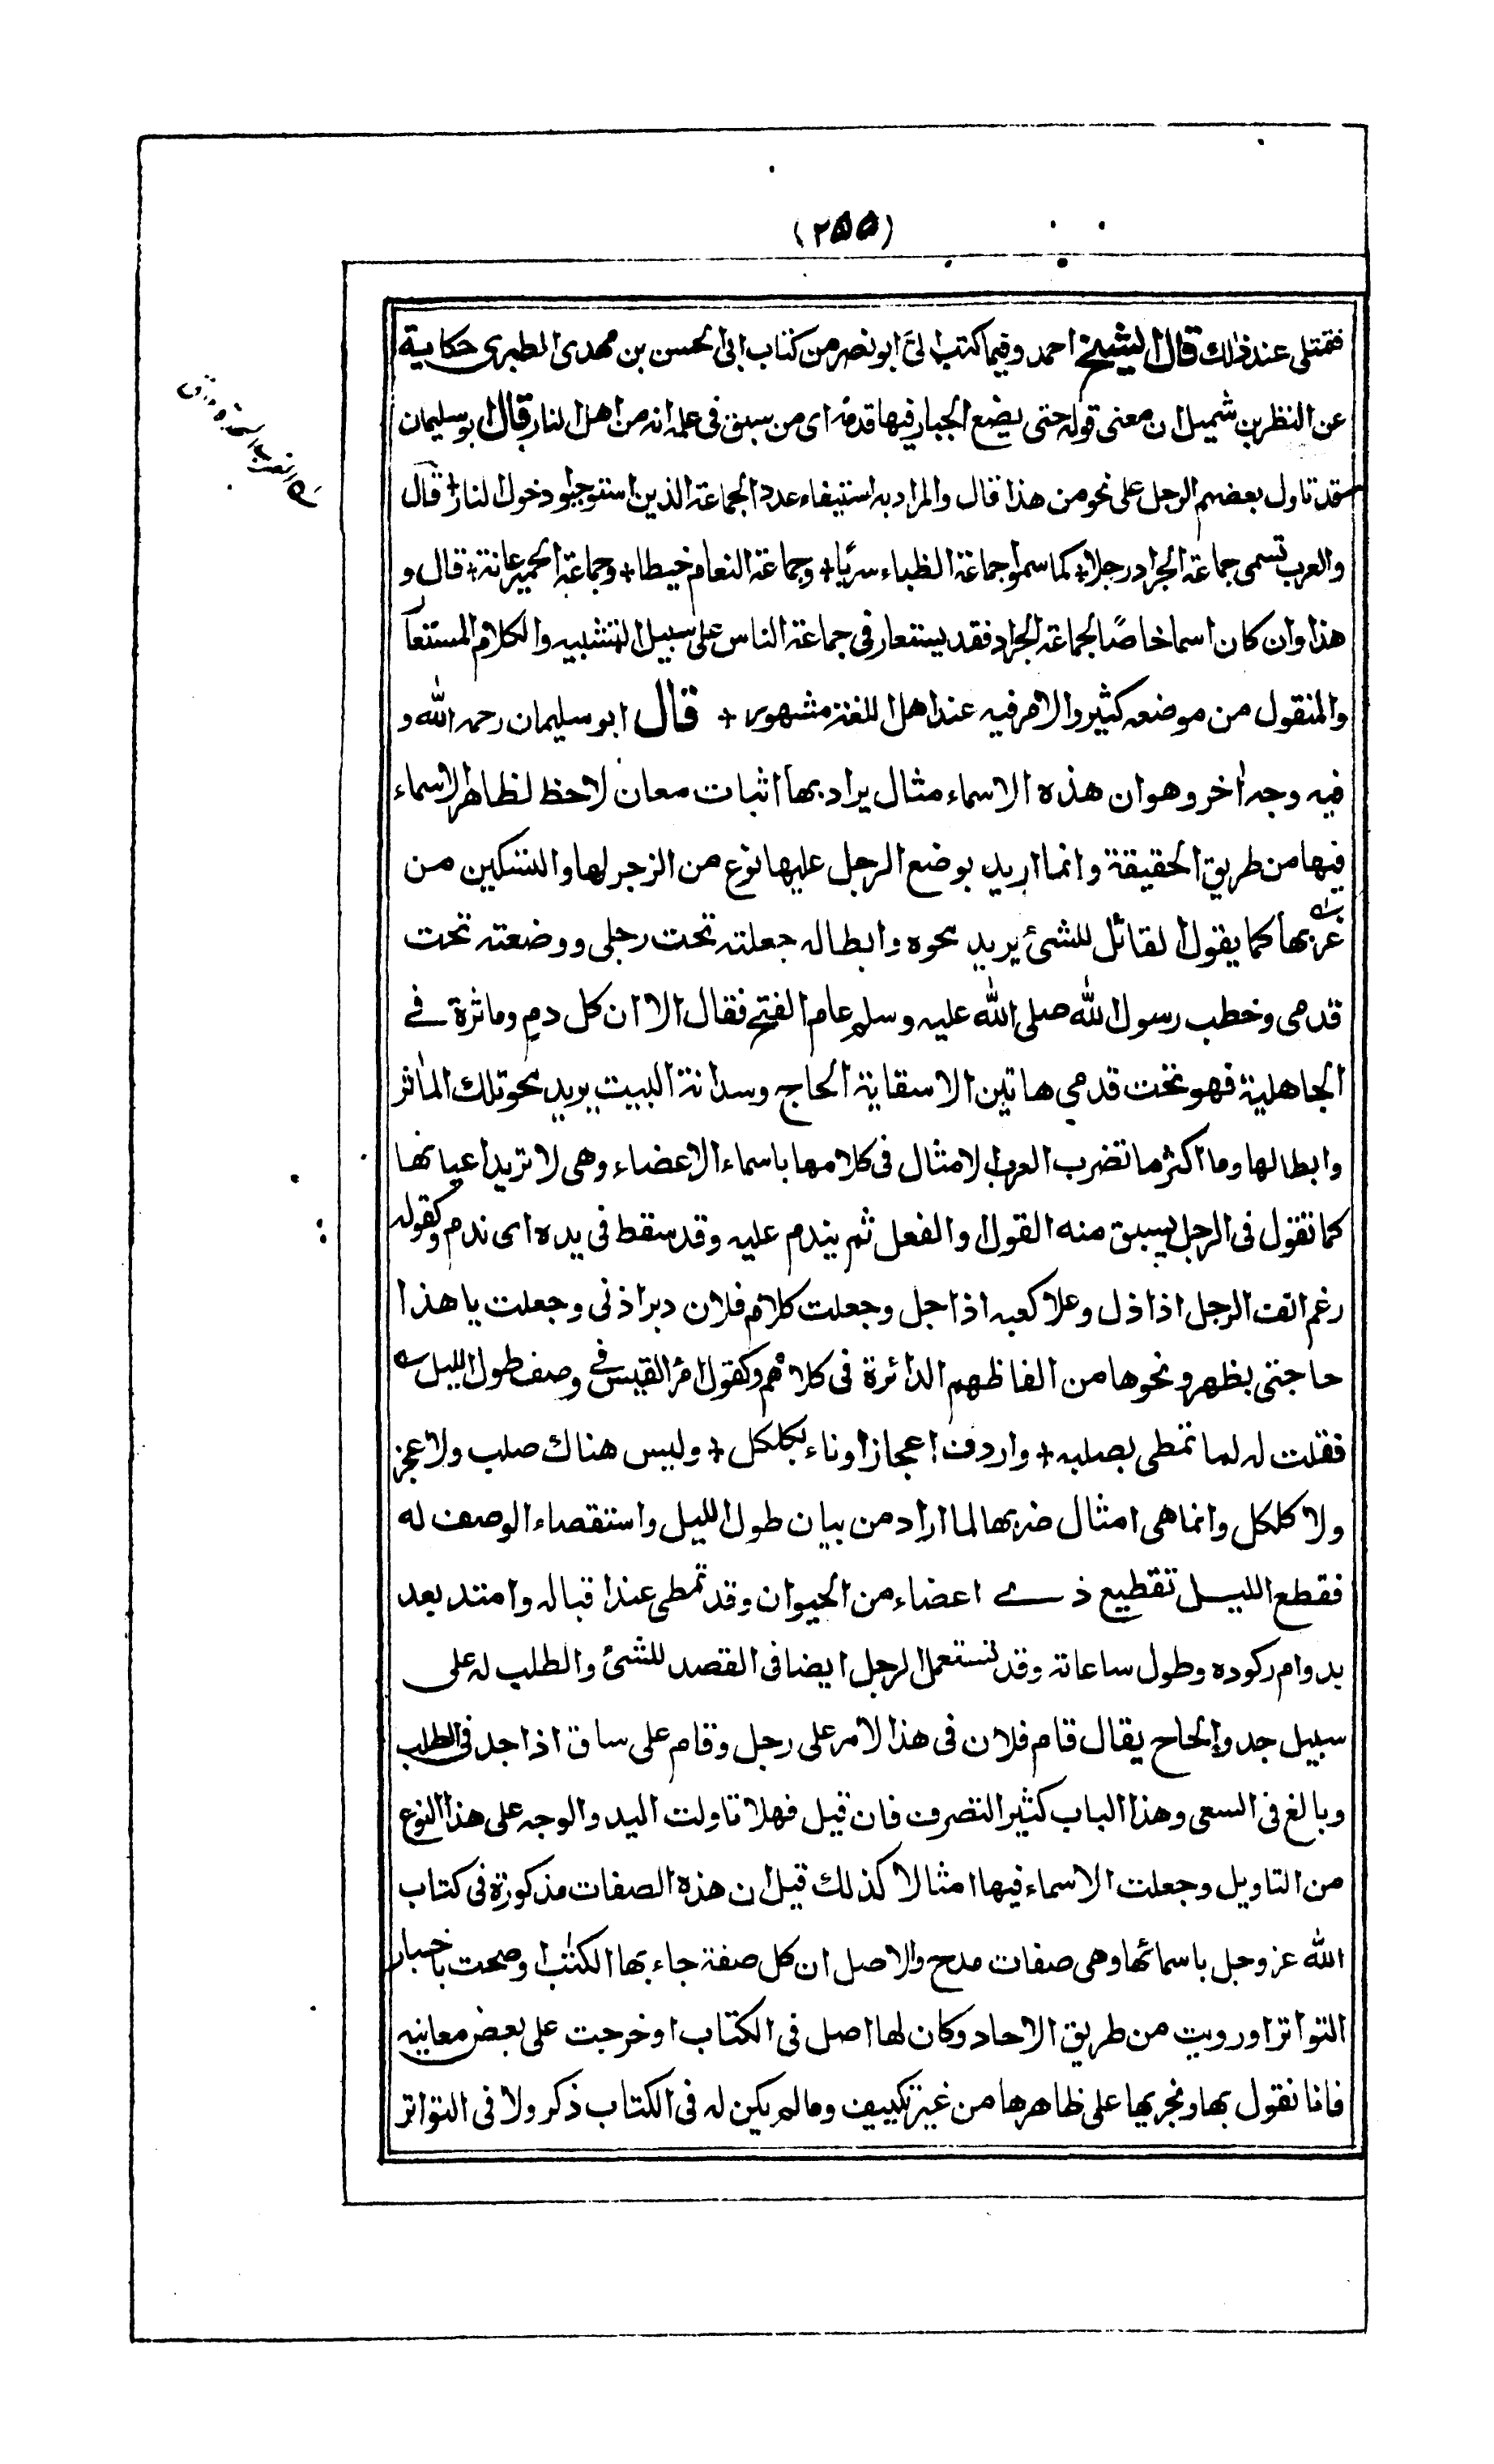 (٢٥٥)
فتمتلى عند ذلك قال الشيخ احمد وفيما كتب الىّ ابو نصر من كتاب ابى الحسن بن مهدى الطبرى حكاية
عن النظر بن شميل ان معنى قوله حتى يضع الجبار فيها قدمه اى من سبق فى علمه انه من اهل النار قال ابو سليمان
قد تاول بعضهم الرجل على نحو من هذا قال والمراد به استيفاء عدد الجماعة الذين استوجبوا دخول النار + قال
والعرب تسمى جماعة الجراد رجلا + كما سموا جماعة الظباء سربًا + وجماعة النعام خيطا + وجماعة الحمير عانة + قال و
هذا وان كان اسما خاصًا لجماعة الجراد فقد يستعار فى جماعة الناس على سبيل التشبيه والكلام المستعار
والمنقول من موضعه كثير والامر فيه عند اهل اللغة مشهور + قال ابو سليمان رحمه الله و
فيه وجه اخر وهو ان هذه الاسماء مثال يراد بها اثبات معان لاحظ لظاهر الاسماء
فيها من طريق الحقيقة وانما اريد بوضع الرجل عليها نوع من الزجر لها والتسكين من
غربها كما يقول القائل للشئ يريد محوه وابطاله جعلته تحت رجلى ووضعته تحت
قدمى وخطب رسول الله صلى الله عليه وسلم عام الفتح فقال الا ان كل دم وماثرة فے
الجاهلية فهو تحت قدمي هاتين الا سقاية الحاج وسدانة البيت يريد محو تلك الماثر
وابطالها وما اكثر ما تضرب العرب الامثال فى كلامها باسماء الاعضاء وهى لا تريد اعيانها
كما تقول فى الرجل يسبق منه القول والفعل ثم يندم عليه وقد سقط فى يده اى ندم وكقوله
رغم انف الرجل اذا ذل وعلا كعبه اذا جل وجعلت كلام فلان دبر اذنى وجعلت يا هذا
حاجتى بظهر ونحوها من الفاظهم الدائرة فى كلامهم وكقول امرؤ القيس فے وصف طول الليل
فقلت له لما تمطى بصلبه + واردف اعجازا وناء بكلكل + وليس هناك صلب ولا عجز
ولا كلكل وانما هى امثال ضربها لما اراد من بيان طول الليل واستقصاء الوصف له
فقطع الليل تقطيع ذے اعضاء من الحيوان وقد تمطى عند اقباله وامتد بعد
بدوام ركوده وطول ساعاته وقد تستعمل الرجل ايضا فى القصد للشئ والطلب له على
سبيل جد والحاح يقال قام فلان فى هذا الامر على رجل وقام على ساق اذا جد فى الطلب
وبالغ فى السعى وهذا الباب كثير التصرف فان قيل فهلا تاولت اليد والوجه على هذا النوع
من التاويل وجعلت الاسماء فيها امثالا كذلك قيل ان هذه الصفات مذكورة فى كتاب
الله عز وجل باسمائها وهى صفات مدح والاصل ان كل صفة جاء بها الكتاب او صحت باخبار
التواتر او رويت من طريق الاحاد وكان لها اصل فى الكتاب او خرجت على بعض معانيه
فانا نقول بها ونجريها على ظاهرها من غير تكييف وما لم يكن له فى الكتاب ذكر ولا فى التواتر